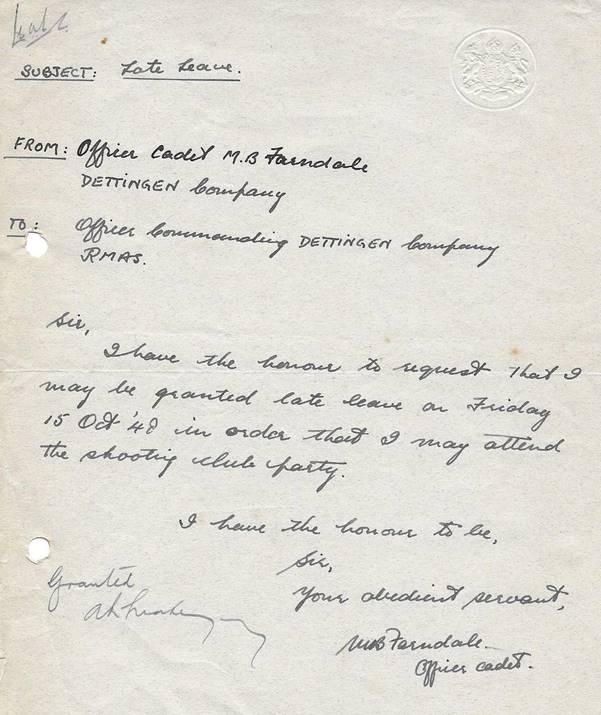 SUBJECT: Late Leave.
FROM: Officer Cadet M.B Farndale
DETTINGEN Company
TO: Officer Commanding DETTINGEN Company
RMAS.
Sir,
I have the honour to request that I
may be granted late leave on Friday
15 Oct '48 in order that I may attend
the shooting club party.
I have the honour to be,
Sir,
Your obedient servant,
MB Farndale.
Officer cadet.
Granted